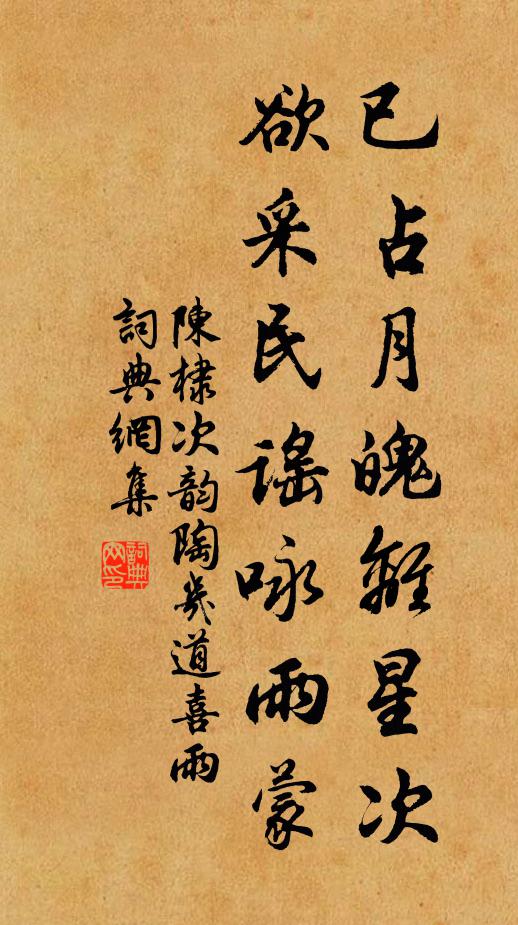 已占月魄離星次
欲采民謠咏雨蒙
陳棣次韵陶幾道喜雨
詞典網集
詞典網印